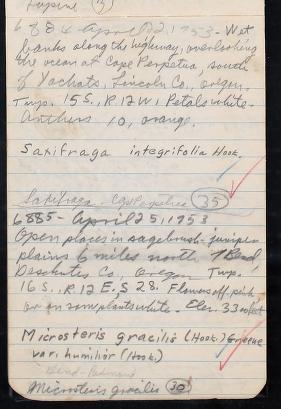 Lupine (3)
6884 April 22, 1953 - Wet
banks along the highway, overlooking
the ocean at Cape Perpetua, south
of Yachats, Lincoln Co., Oregon,
Twp. 15 S., R 12 W, Petals white.
Anthers 10, orange.
Saxifraga integrifolia Hook.
Saxifraga - Cape Perpetua (35)
6885 - April 25, 1953
Open places in sagebrush-juniper
plains 6 miles north of Bend,
Deschutes Co., Oregon Twp.
16 S. R 12 E, S 28. Flowers off pink
or on some plants white. Elev. 33 00 feet
Microsteris gracilis (Hook.) Greene
var. humilior (Hook.)
Bend - Redmond
Microsteris gracilis (30)